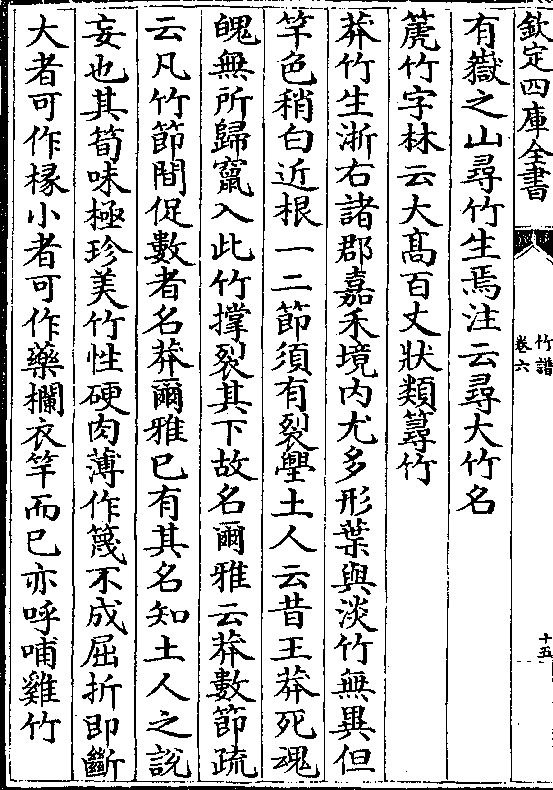 欽定四庫全書
竹譜
卷六
十五
有嶽之山尋竹生焉注云尋大竹名
篪竹字林云大髙百丈狀類䔩竹
莽竹生浙右諸郡嘉禾境内尤多形葉與淡竹無異但
竿色稍白近根一二節須有裂璺土人云昔王莽死魂
魄無所歸竄入此竹撑裂其下故名爾雅云莽數節疏
云凡竹節間促數者名莽爾雅已有其名知土人之説
妄也其筍味極珍美竹性硬肉薄作篾不成屈折即斷
大者可作椽小者可作藥欄衣竿而已亦呼哺雞竹